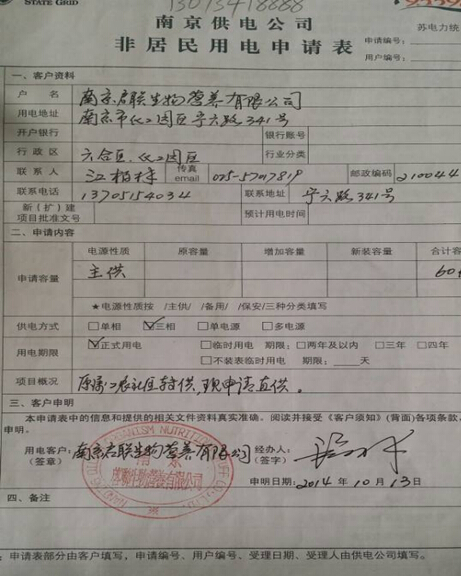 STATE GRID
13073418888
南京供电公司
非居民用电申请表
苏电力统
申请编号：
用户编号：
一、客户资料
户 名 南京君联生物营养有限公司
用电地址 南京市化工园区宁六路341号
开户银行 银行账号
行政区 六合区、化工园区 行业分类
联系人 江 传真 email 025-57017819 邮政编码 210044
联系电话 13705154034 联系地址 宁六路341号
新（扩）建项目批准文号 预计用电时间
二、申请内容
电源性质 原容量 增加容量 新装容量 合计容
申请容量 主供 60
★电源性质按 /主供/ /备用/ /保安/三种分类填写
供电方式 □单相 ☑三相 □单电源 □多电源
用电期限 ☑正式用电 □临时用电 期限：□两年及以内 □三年 □四年
□不装表临时用电 期限：____天
项目概况 转供，现申请直供。
三、客户申明
本申请表中的信息和提供的相关文件资料真实准确。阅读并接受《客户须知》(背面)各项条款，
申明。
用电客户：南京君联生物营养有限公司 经办人：
（签章） （签字）
申明日期：2014年10月13日
四、备注
：申请表部分由客户填写，申请编号、用户编号、受理日期、受理人由供电公司填写。